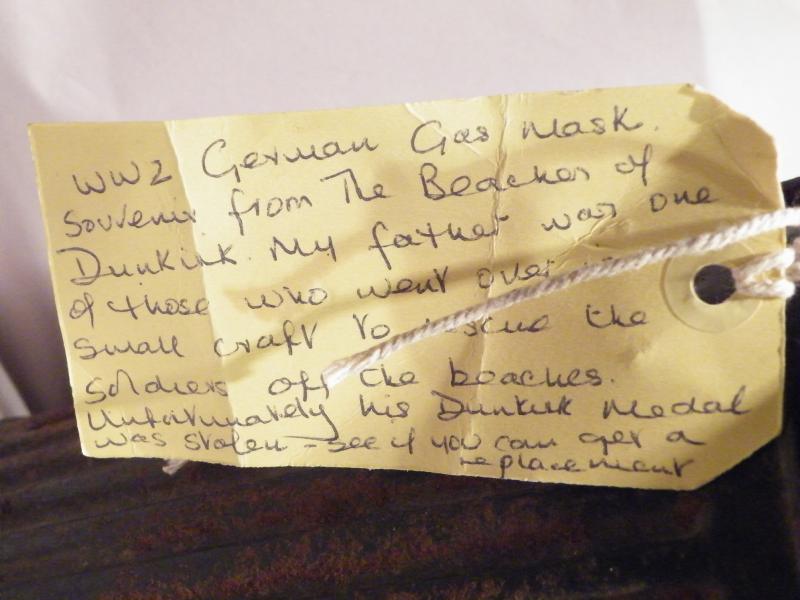 WW2 German Gas Mask.
Souvenir from The Beaches of
Dunkirk. My father was one
of those who went over
small craft to rescue the
soldiers off the beaches.
Unfortunately his Dunkirk Medal
was stolen - see if you can get a
replacement